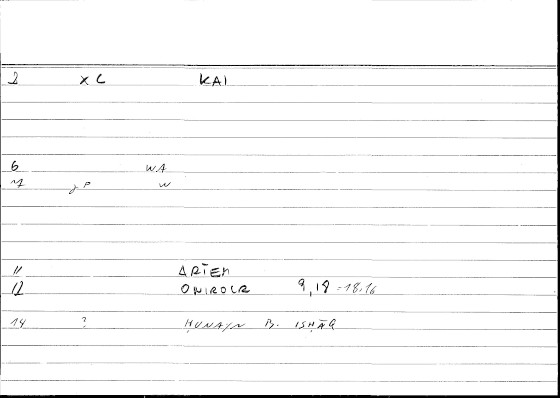 2 XC KAI
6 WA
7 gP W
11 ARTEM
12 ONIROCR 9,18 = 18,16
14 ? ḤUNAYN B. ISḤĀQ